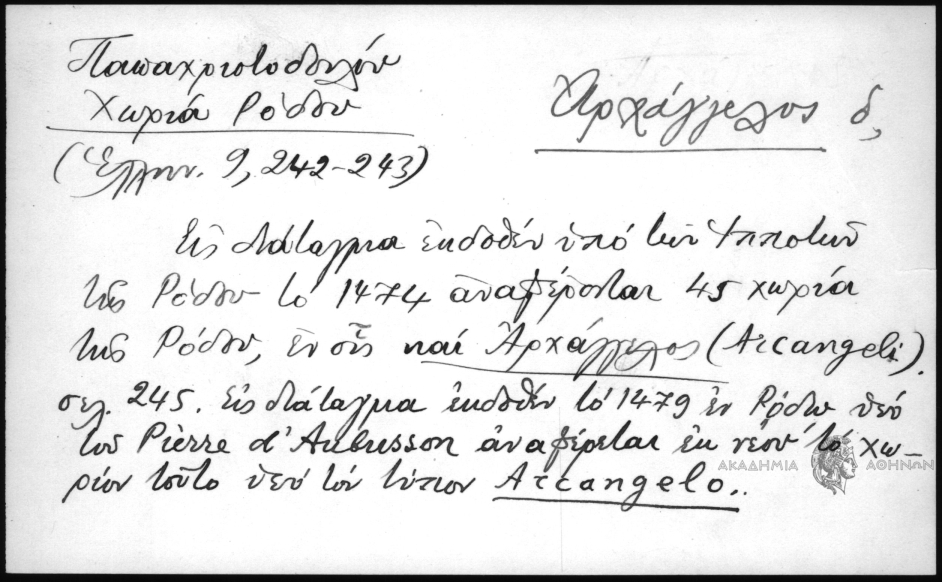 Παπαχριστοδούλου
Χωριά Ρόδου
(Ἑλλην. 9, 242-243)
Ἀρχάγγελος ὁ,
Εἰς διάταγμα ἐκδοθὲν ὑπὸ τῶν Ἱπποτῶν
τῆς Ρόδου τὸ 1474 ἀναφέρονται 45 χωρία
τῆς Ρόδου, ἐν οἷς καὶ Ἀρχάγγελος (Arcangeli).
σελ. 245. Εἰς διάταγμα ἐκδοθὲν τὸ 1479 ἐν Ρόδῳ ὑπὸ
τοῦ Pierre d'Aubusson ἀναφέρεται ἐκ νέου τὸ χω-
ρίον τοῦτο ὑπὸ τὸν τύπον Arcangelo..
ΑΚΑΔΗΜΙΑ ΑΘΗΝΩΝ